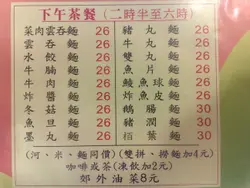 下午茶餐(二時半至六時)
菜肉雲吞麵 26 豬丸麵 26
雲吞麵 26 牛丸麵 26
水餃麵 26 雙丸麵 26
牛腩麵 26 魚片麵 26
牛肉麵 26 鯪魚球麵 26
炸醬麵 26 炸魚皮麵 26
冬菇麵 26 鵝腸麵 30
魚旦麵 26 豬麵 30
墨丸麵 26 栢葉麵 30
(河、米、麵同價)(雙拼、撈麵加4元)
咖啡或茶(凍飲加2元)
郊外油菜8元